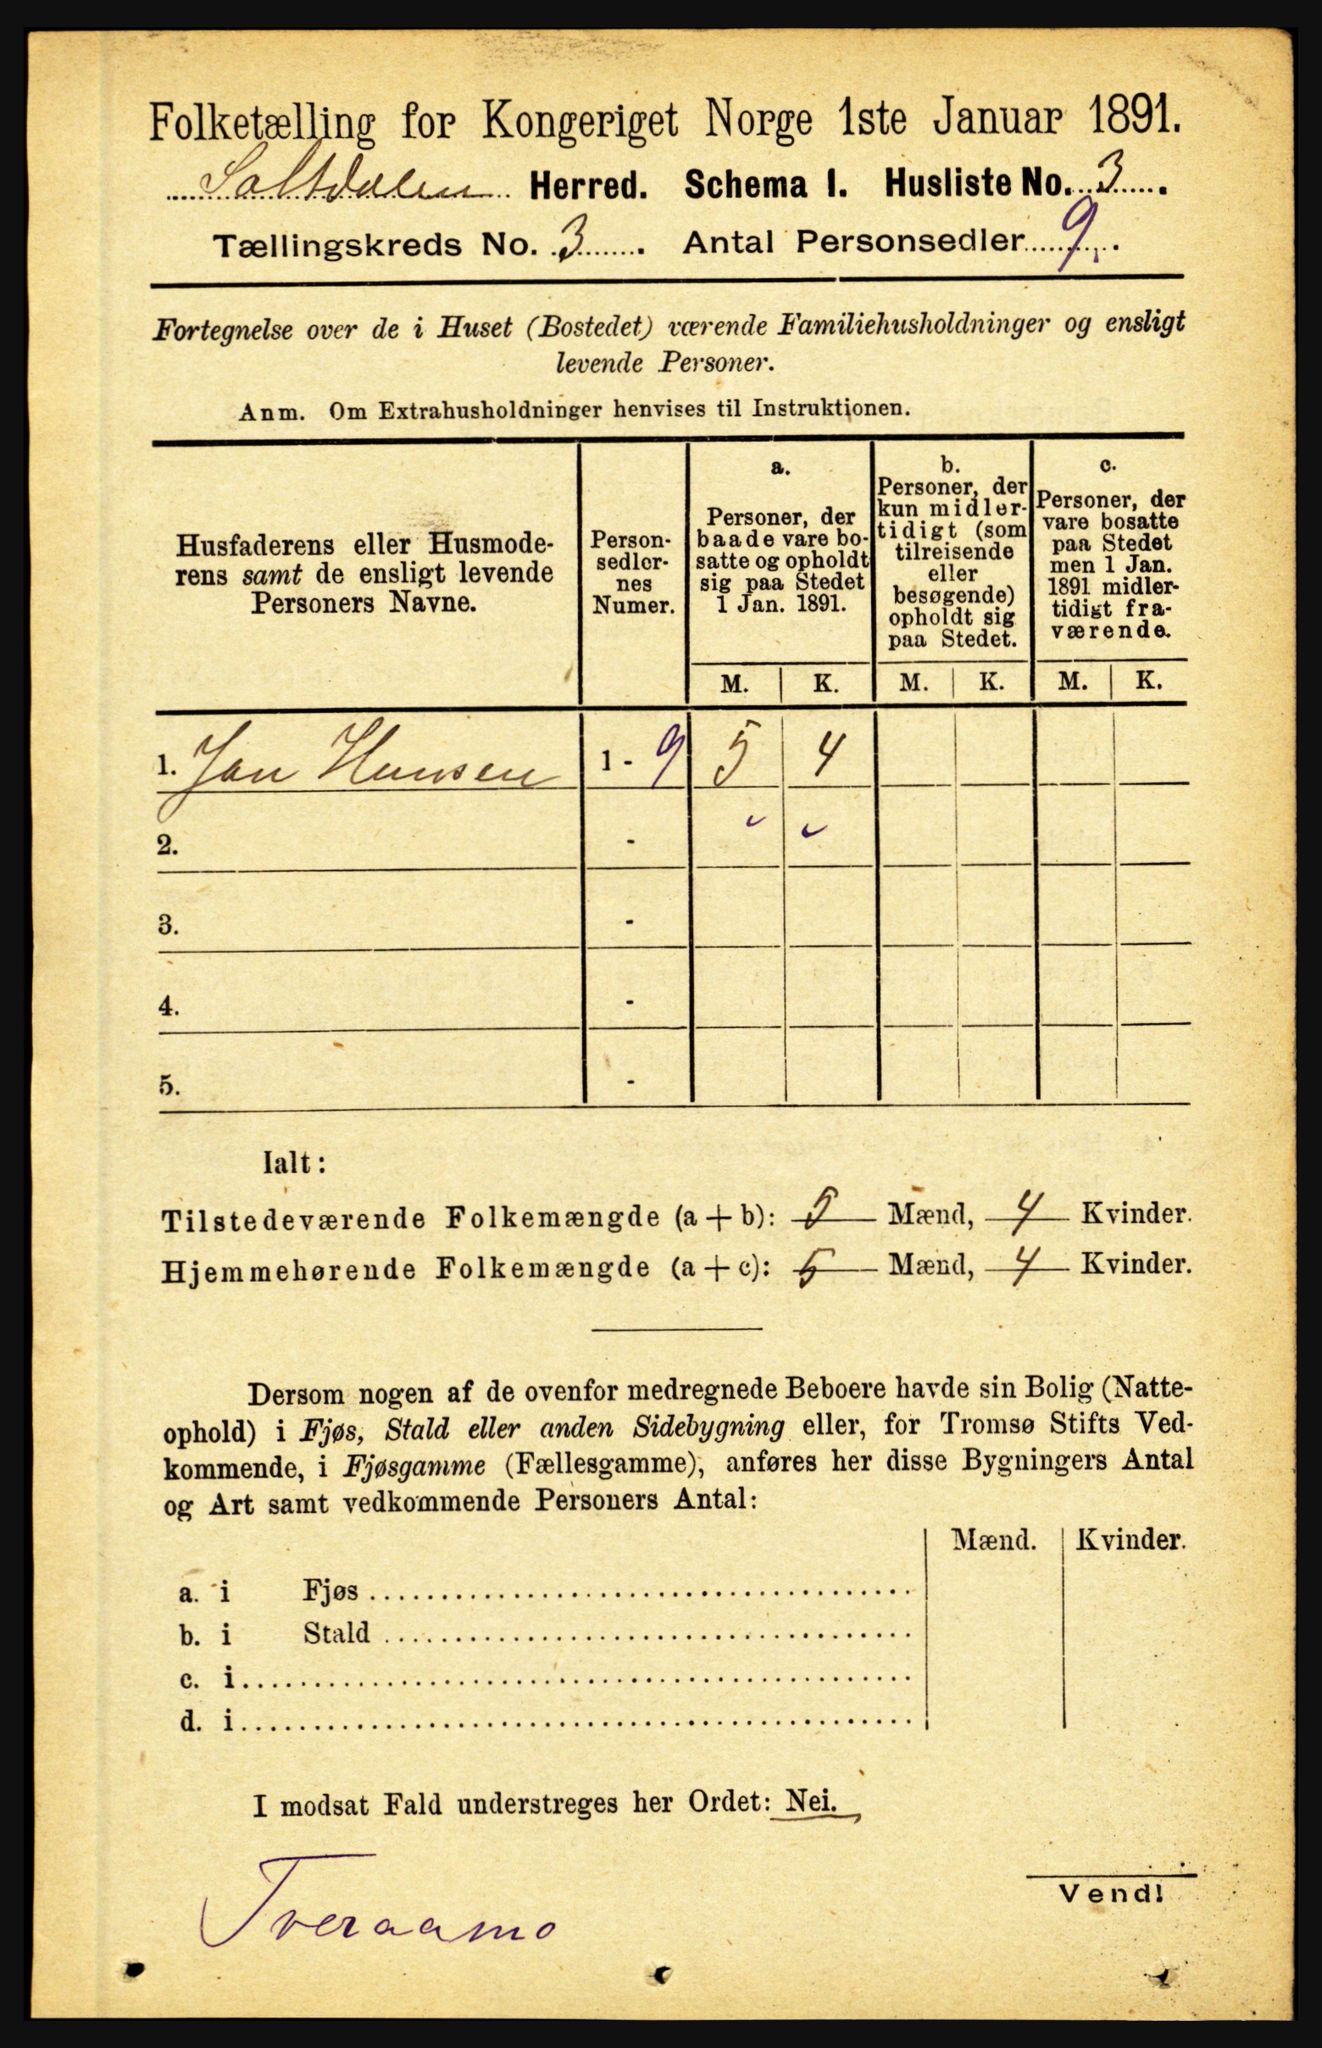 Folketælling for Kongeriget Norge 1ste Januar 1891.
Saltdalen Herred. Schema I. Husliste No. 3.
Tællingskreds No. 3. Antal Personsedler 9.
Fortegnelse over de i Huset (Bostedet) værende Familiehusholdninger og ensligt
levende Personer.
Anm. Om Extrahusholdninger henvises til Instruktionen.
Husfaderens eller Husmode-
rens samt de ensligt levende
Personers Navne.
Person-
sedler-
nes
Numer.
a.
Personer, der
baade vare bo-
satte og opholdt
sig paa Stedet
1 Jan. 1891.
b.
Personer, der
kun midler-
tidigt (som
tilreisende
eller
besøgende)
opholdt sig
paa Stedet.
c.
Personer, der
vare bosatte
paa Stedet
men 1 Jan.
1891 midler-
tidigt fra-
værende.
M. K. M. K. M. K.
1. Jan Hansen 1 - 9 5 4
2. -
3. -
4. -
5. -
Ialt:
Tilstedeværende Folkemængde (a + b): 5 Mænd, 4 Kvinder.
Hjemmehørende Folkemængde (a + c): 5 Mænd, 4 Kvinder.
Dersom nogen af de ovenfor medregnede Beboere havde sin Bolig (Natte-
ophold) i Fjøs, Stald eller anden Sidebygning eller, for Tromsø Stifts Ved-
kommende, i Fjøsgamme (Fællesgamme), anføres her disse Bygningers Antal
og Art samt vedkommende Personers Antal:
Mænd. Kvinder.
a. i Fjøs
b. i Stald
c. i
d. i
I modsat Fald understreges her Ordet: Nei.
Vend!
Tveraamo